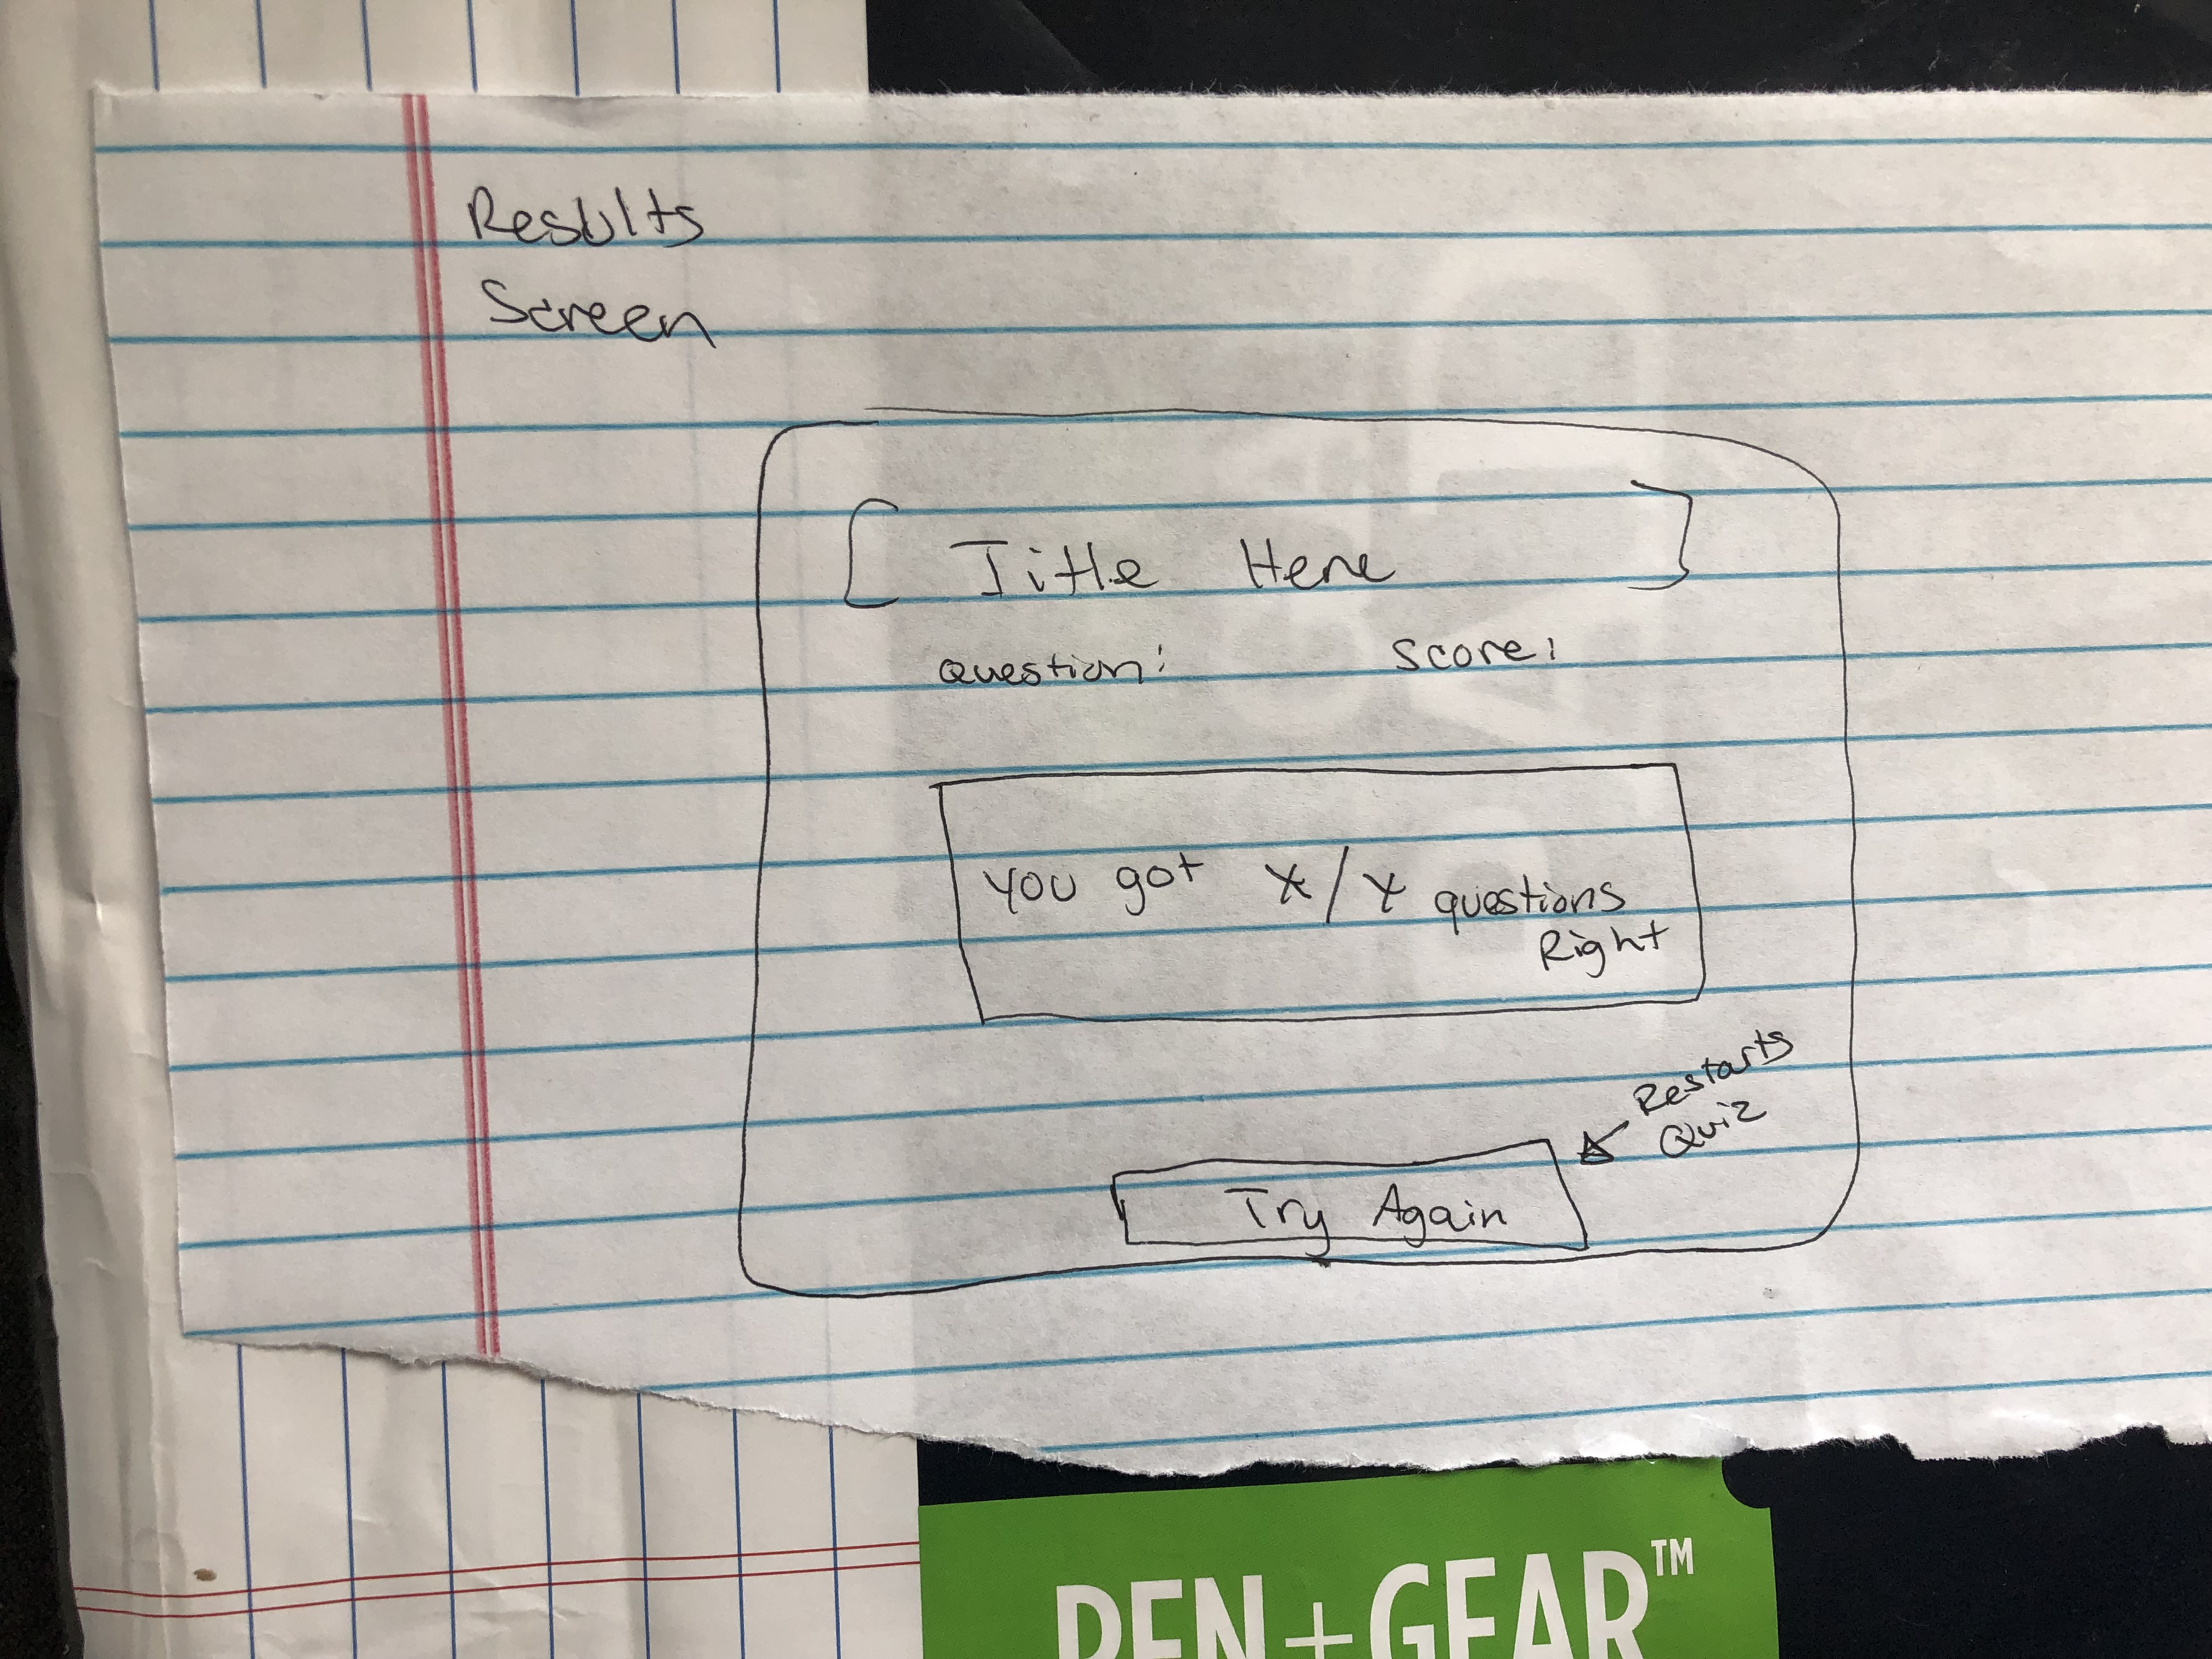 Results
Screen
Title Here
Question: Score:
You got X/X questions
Right
Try Again
Restarts
Quiz
DEN+GEAR™